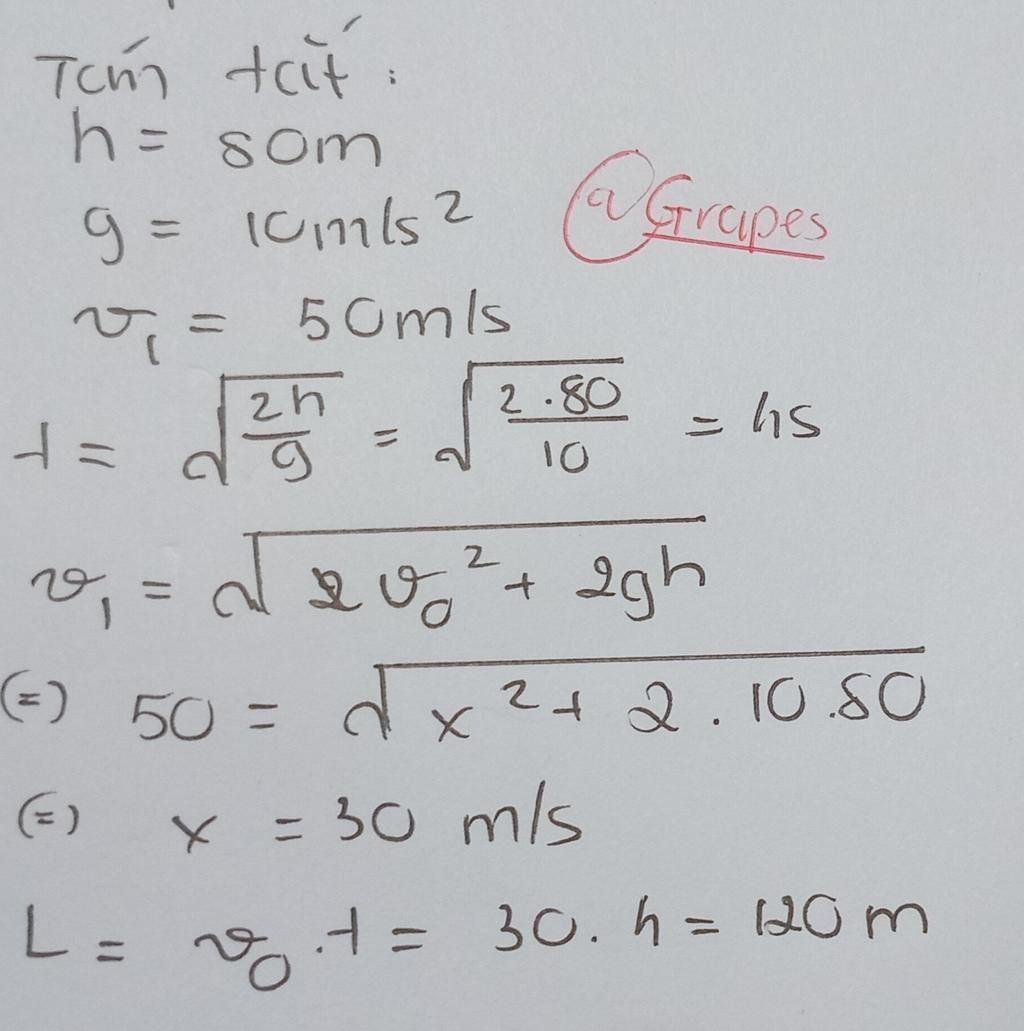 Tóm tắt:
h = 80m
g = 10m/s²
@Grapes
v₁ = 50m/s
t = √(2h/g) = √(2.80/10) = 4s
v₁ = √(v₀² + 2gh)
(=) 50 = √(x² + 2.10.80)
(=) x = 30 m/s
L = v₀.t = 30.4 = 120m